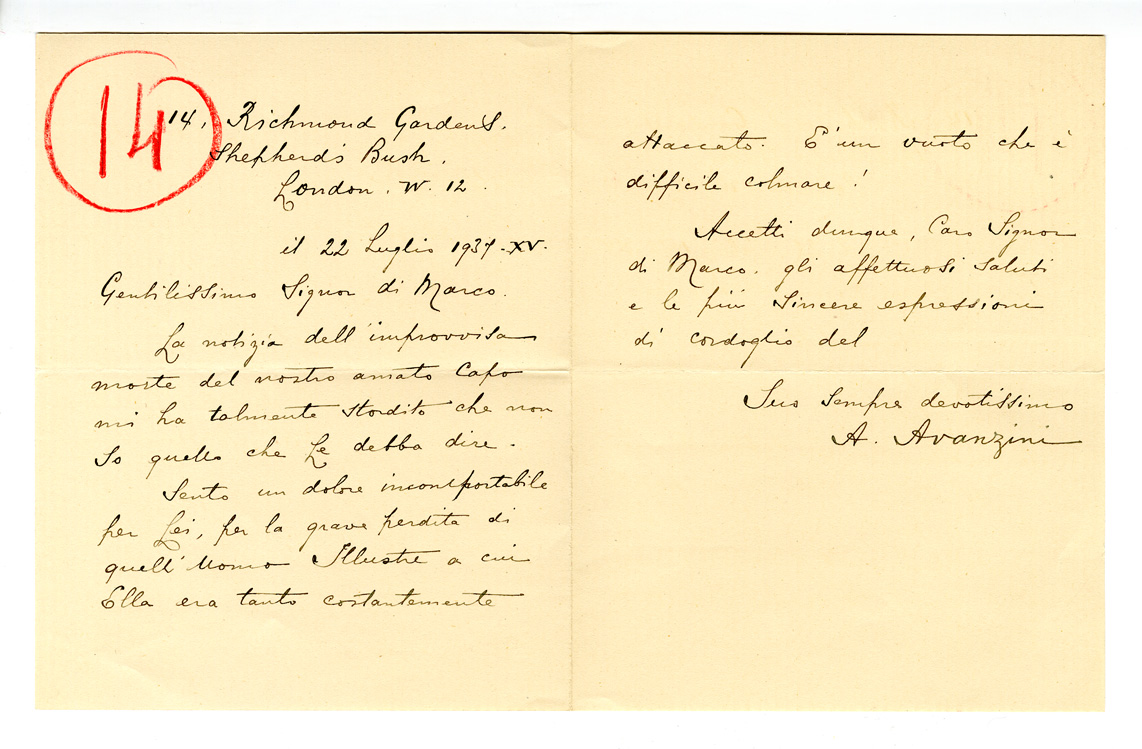 14
14, Richmond Gardens.
Shepherd's Bush.
London. W. 12.
il 22 Luglio 1937-XV.
Gentilissimo Signor di Marco.
La notizia dell'improvvisa
morte del nostro amato Capo
mi ha talmente stordito che non
so quello che Le debba dire.
Sento un dolore incomportabile
per Lei, per la grave perdita di
quell'Uomo Illustre a cui
Ella era tanto costantemente
attaccato. E' un vuoto che è
difficile colmare!
Accetti dunque, Caro Signor
di Marco. gli affettuosi saluti
e le più sincere espressioni
di cordoglio del
Suo sempre devotissimo
A. Avanzini